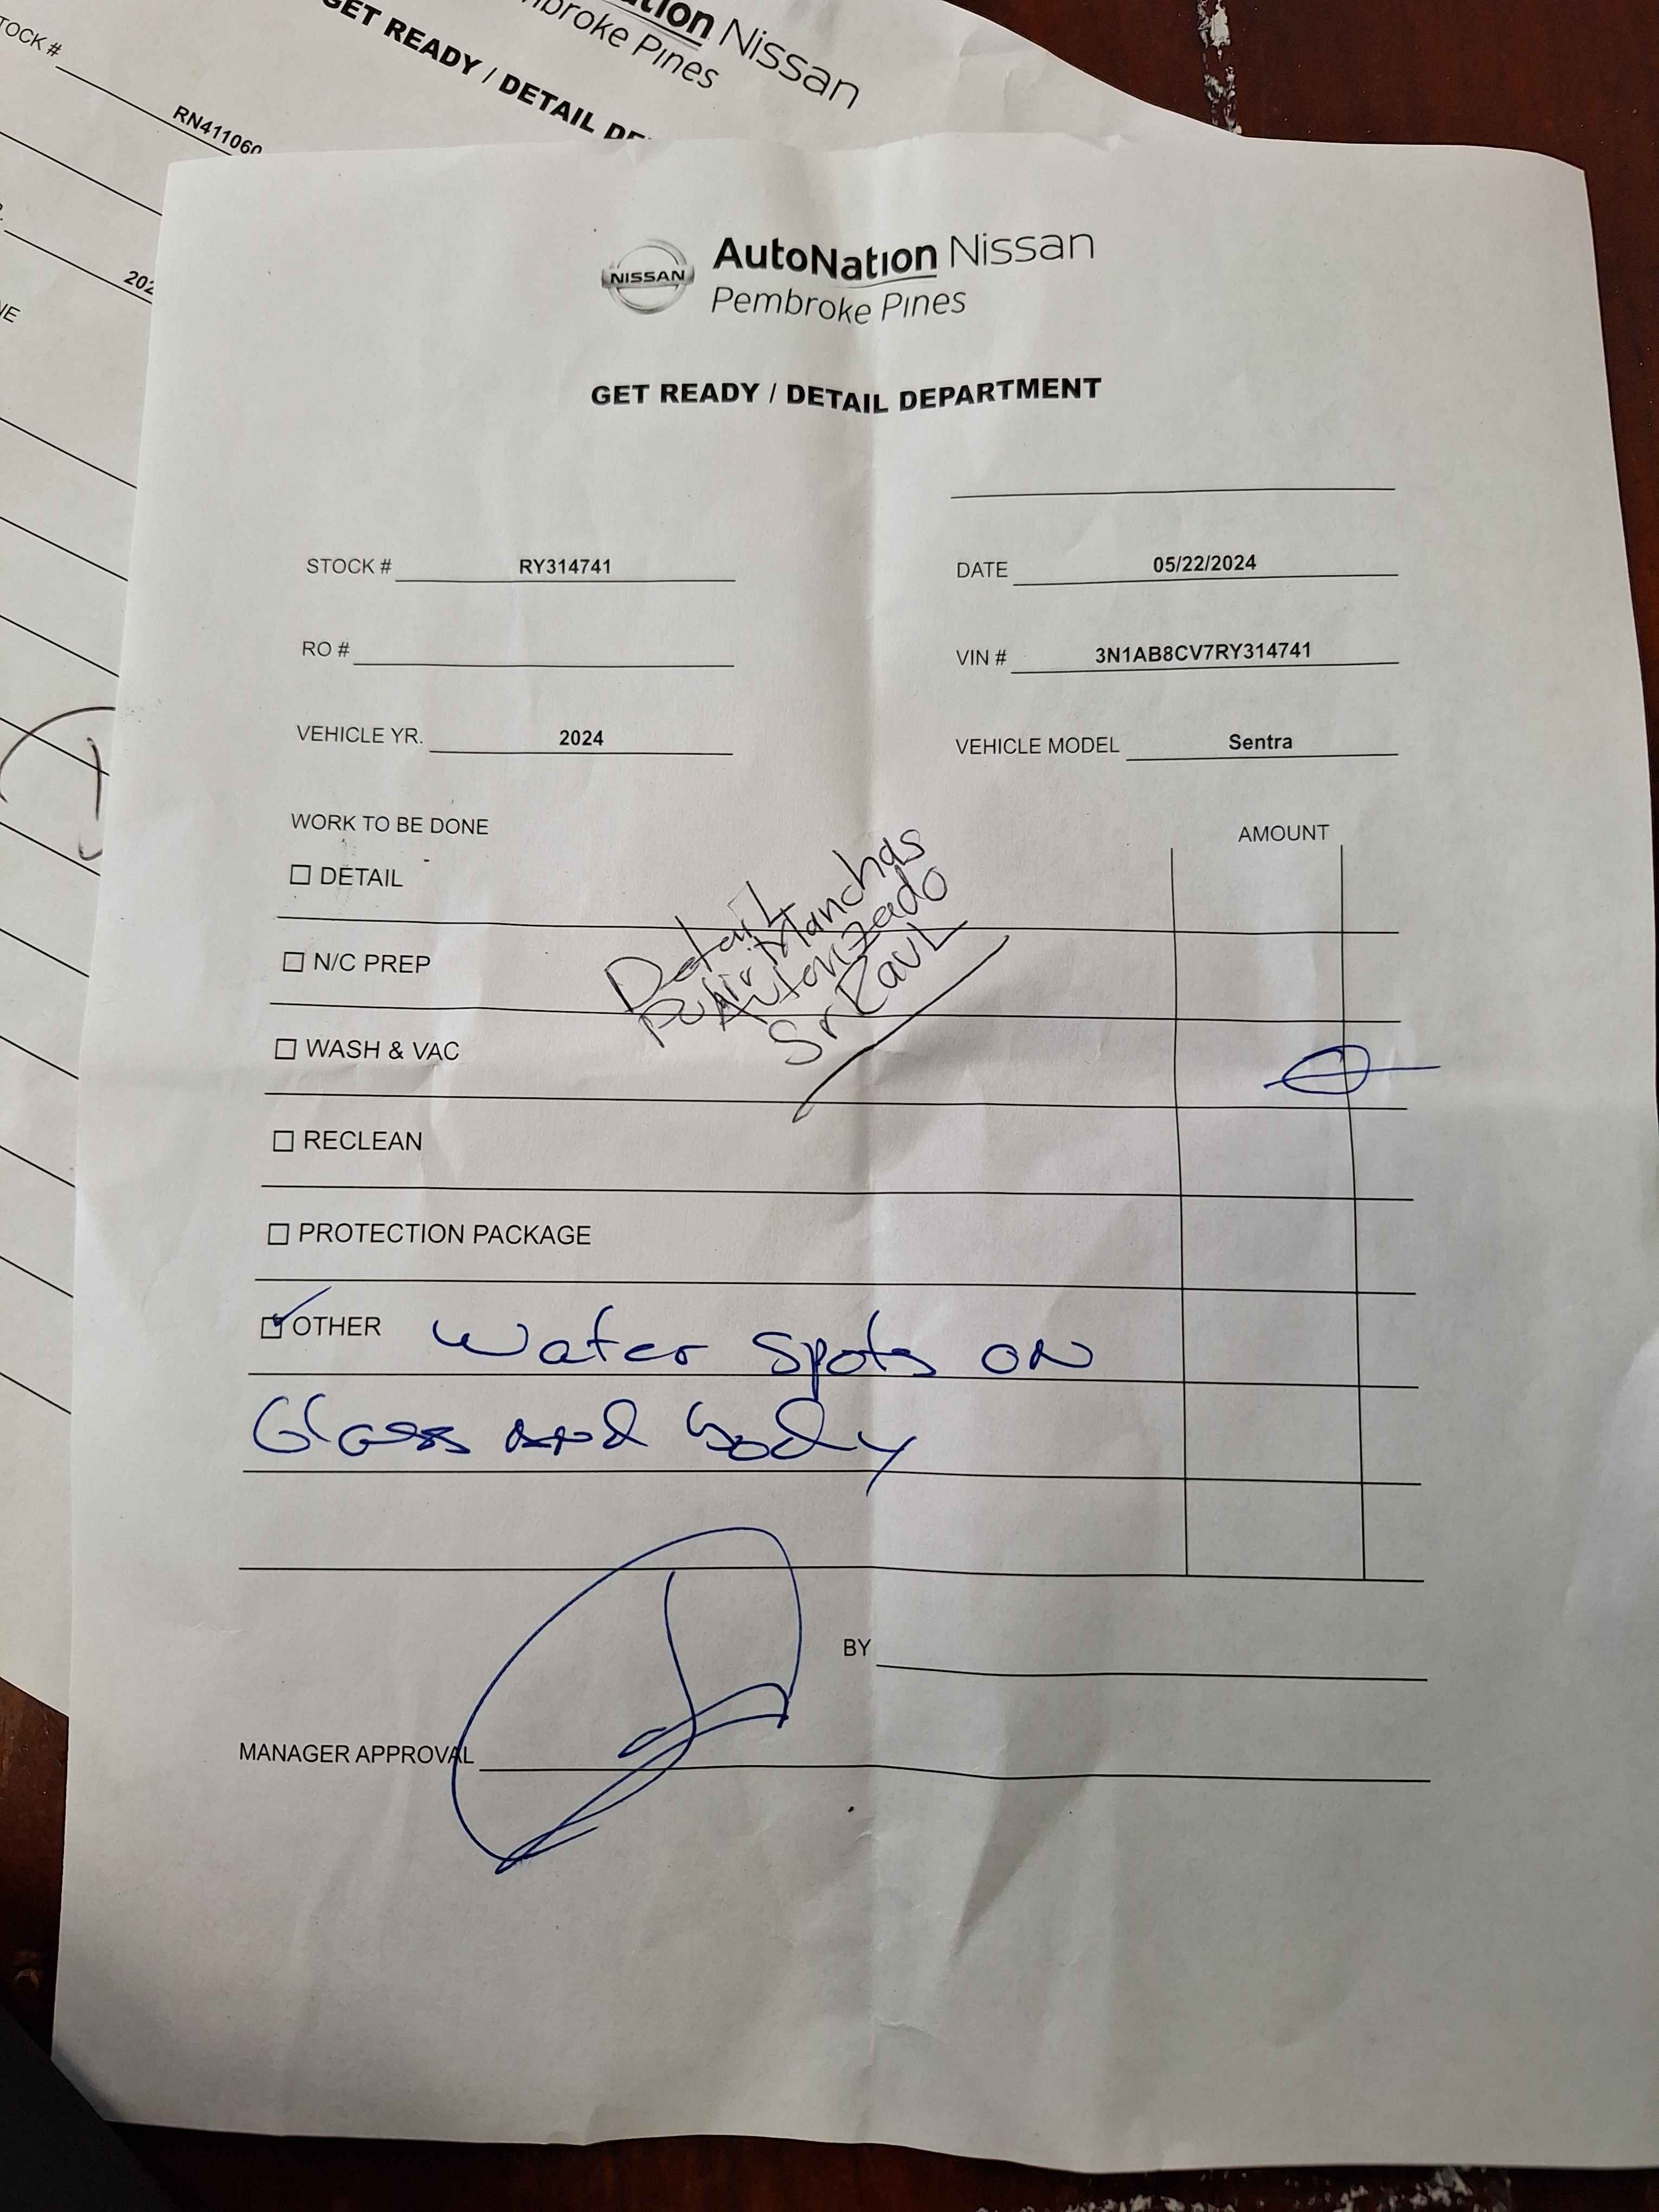 AutoNation Nissan
Pembroke Pines
GET READY / DETAIL
STOCK #
RN411060
NISSAN
AutoNation Nissan
Pembroke Pines
GET READY / DETAIL DEPARTMENT
STOCK # RY314741
DATE 05/22/2024
RO #
VIN # 3N1AB8CV7RY314741
VEHICLE YR. 2024
VEHICLE MODEL Sentra
WORK TO BE DONE
AMOUNT
DETAIL
N/C PREP
WASH & VAC
RECLEAN
PROTECTION PACKAGE
Detail
Pulir Manchas
Autorizado
Sr Raul
OTHER Water Spots on
Glass and body
BY
MANAGER APPROVAL